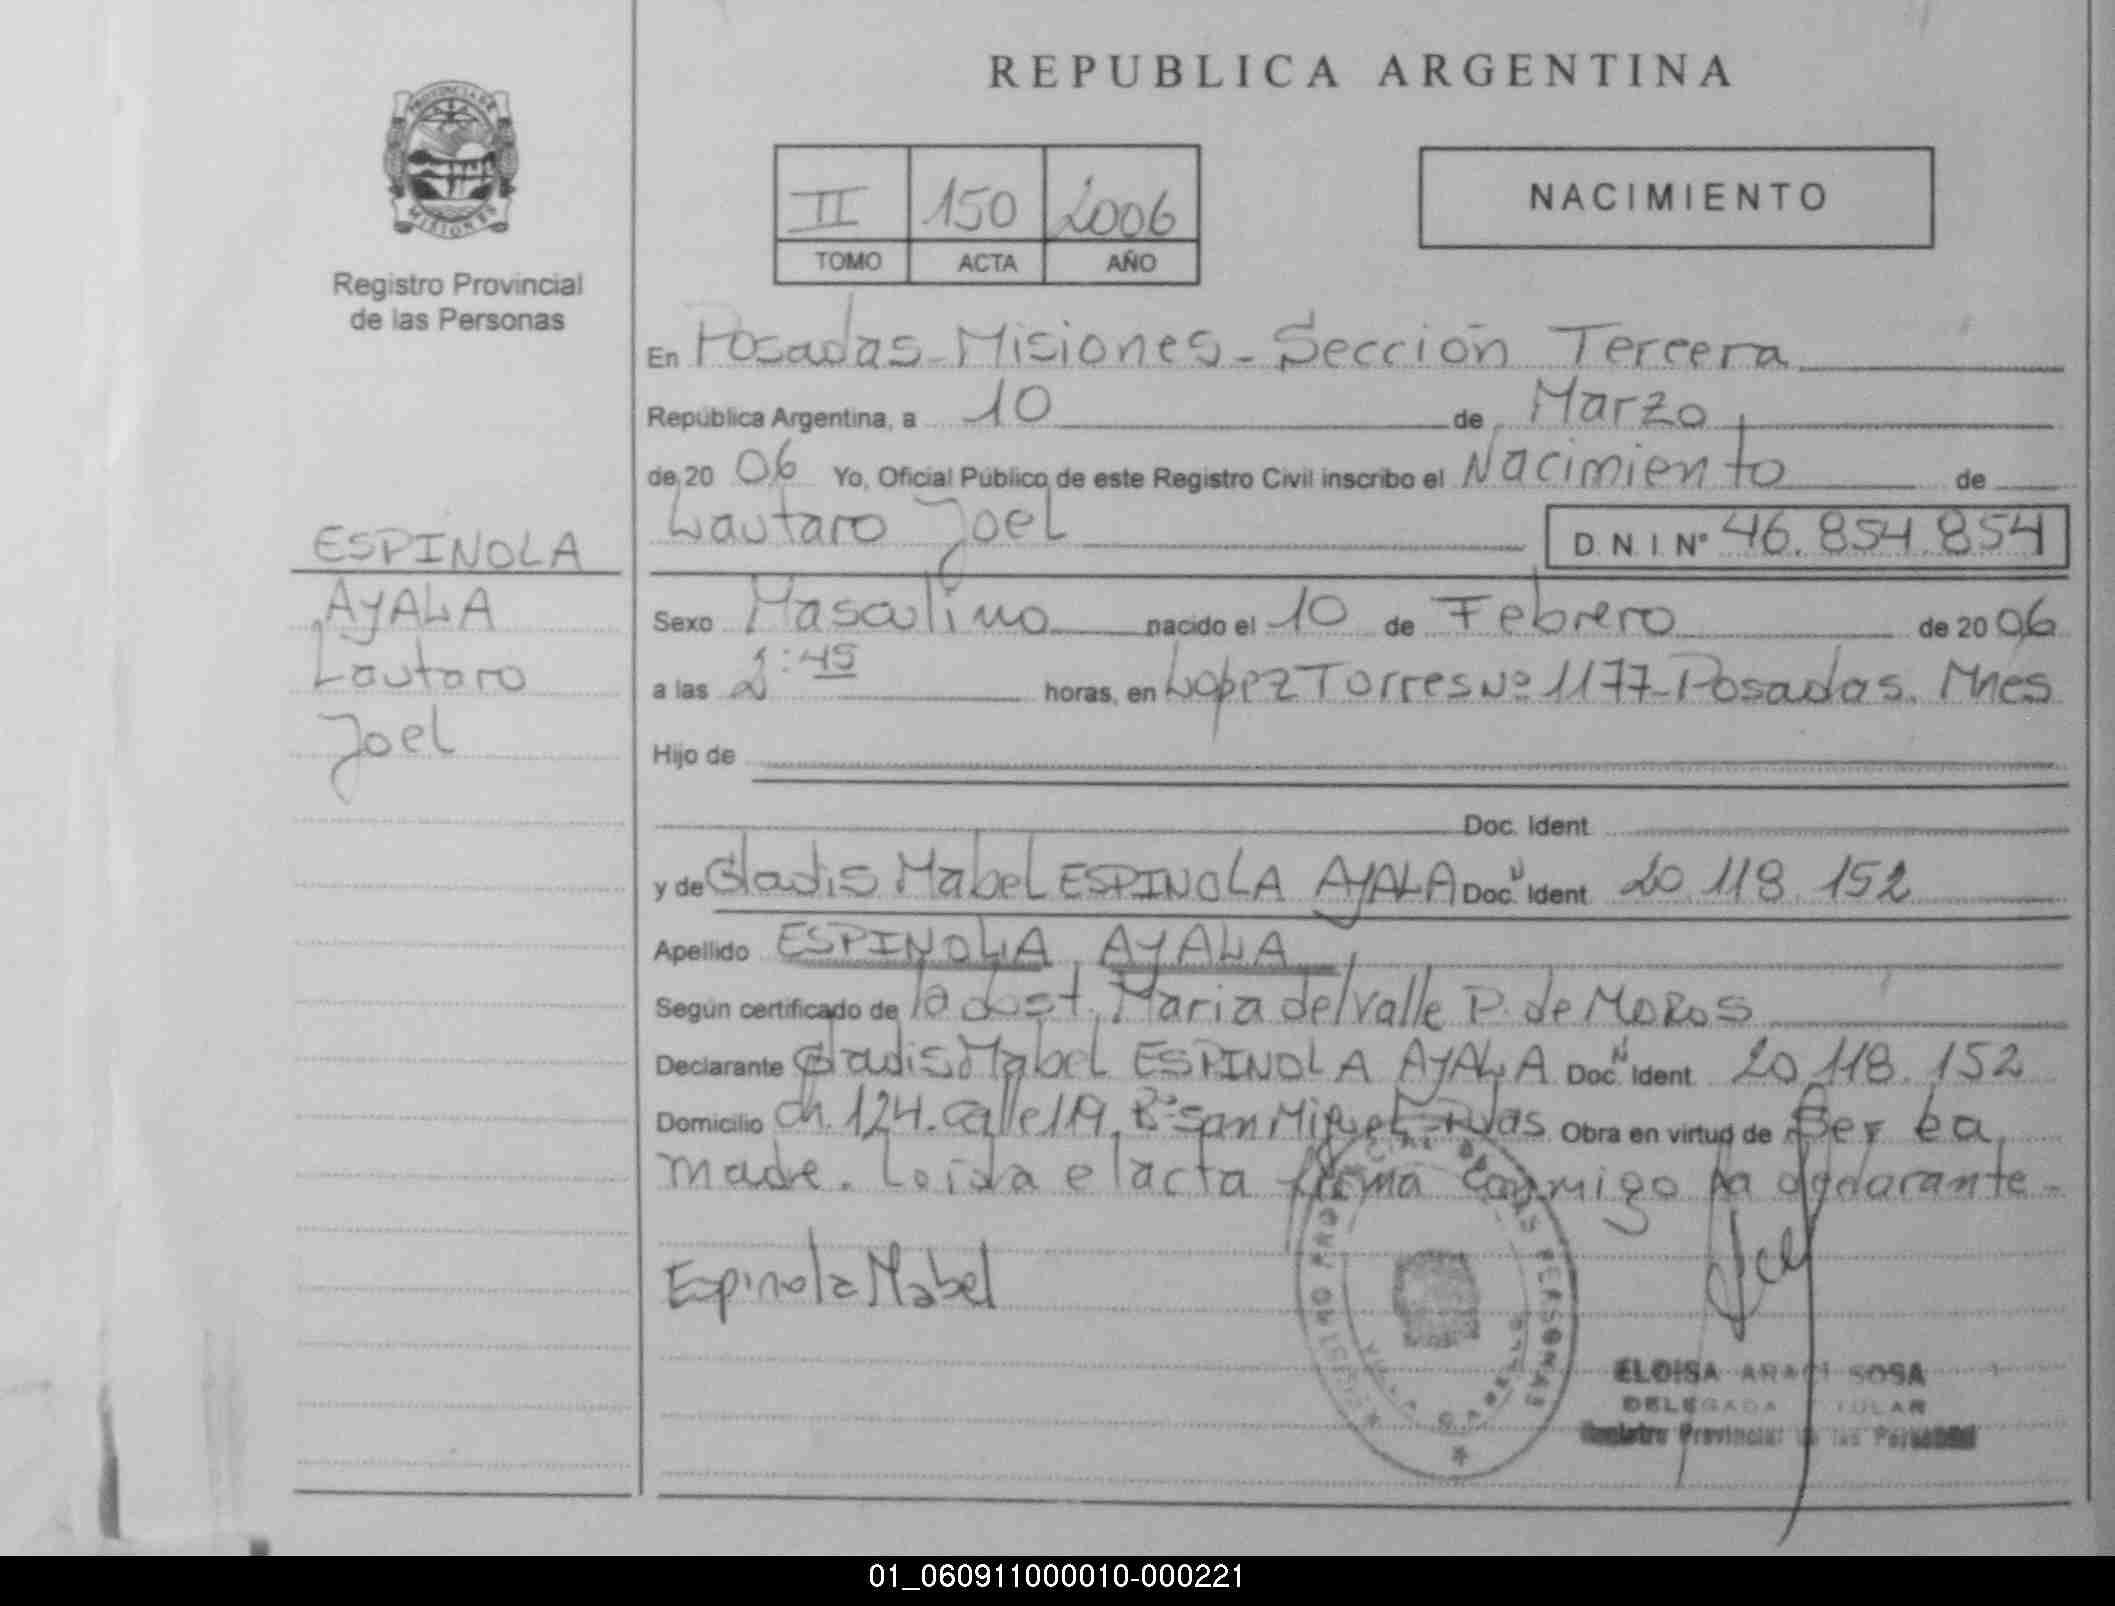 REPUBLICA ARGENTINA
PROVINCIA DE
MISIONES
Registro Provincial
de las Personas
II 150 2006
TOMO ACTA AÑO
NACIMIENTO
En Posadas - Misiones - Sección Tercera
República Argentina, a 10 de Marzo
de 20 06 Yo, Oficial Público de este Registro Civil inscribo el Nacimiento de
Lautaro Joel D N I Nº 46.854.854
ESPINOLA
AYALA
Lautaro
Joel
Sexo Masculino nacido el 10 de Febrero de 20 06
a las 2:45 horas, en Lopez Torres Nº 1177 - Posadas. Mnes
Hijo de
Doc. Ident
y de Gladis Mabel ESPINOLA AYALA Doc. Ident 20.118.152
Apellido ESPINOLA AYALA
Según certificado de la obst. Maria del Valle P. de MOROS
Declarante Gladis Mabel ESPINOLA AYALA Doc. Ident 20.118.152
Domicilio Ch. 124. Calle 119. Bº San Miguel - Pdas Obra en virtud de Ser la
madre. Leida el acta firma conmigo la declarante -
Espinola Mabel
REGISTRO PROVINCIAL DE LAS PERSONAS
ELOISA ARACI SOSA
DELEGADA TITULAR
Registro Provincial de las Personas
01_060911000010-000221